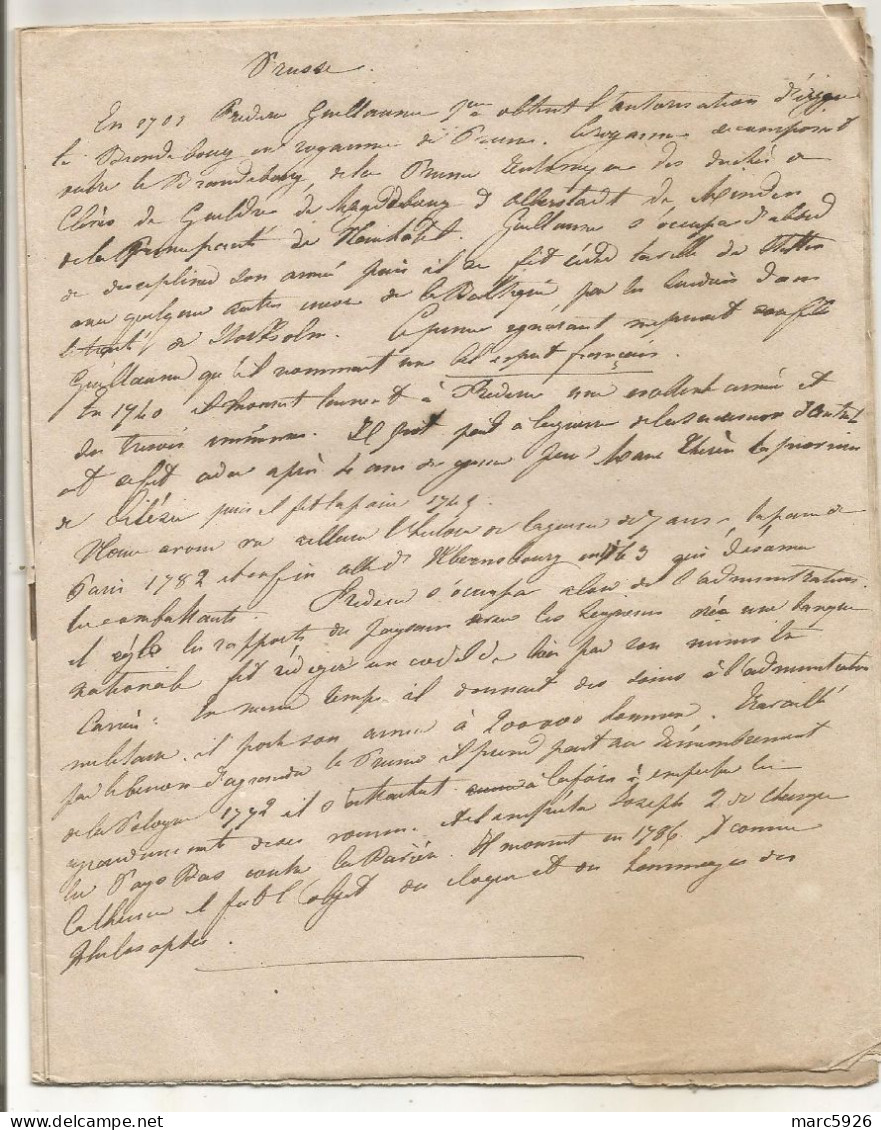 Prusse.
En 1701 Frederic Guillaume 1er obtint l'autorisation d'ériger
le Brandebourg en royaume de Prusse. Ce royaume se composait
outre le Brandebourg, de la Prusse des duchés de
Clèves de Gueldre de Magdebourg d'Alberstadt de Minden
de la Principauté de Neufchatel. Guillaume s'occupa d'abord
de discipliner son armée puis il se fit céder la ville de Stettin
avec quelques autres de la Baltique par les Suédois dans
le traité de Stockolm. Ce prince ignorant méprisait son fils
Guillaume qu'il nommait un bel esprit français.
En 1740 il mourut laissant à Frederic une excellente armée et
des trésors immenses. Il prit part à la guerre de la succession d'Autriche
et se fit céder après 4 ans de guerre par Marie Thérèse la province
de Silésie puis il fit la paix 1745
Nous avons vu ailleurs l'histoire de la guerre de 7 ans, la paix de
Paris 1782 et enfin celle d'Hbernsbourg en 1763 qui désarma
les combattants. Frederic s'occupa alors de l'administration
il régla les rapports des paysans avec les seigneurs créa une banque
nationale fit rédiger un code de lois par son ministre
En même temps il donnait des soins à l'administration
militaire. il porta son armée à 200000 hommes. Travaillé
par le besoin d'agrandir la Prusse il prend part au démembrement
de la Pologne 1772 il s'attachait à la fois à empêcher les
agrandissements de ses voisins. Il empêcha Joseph 2 de changer
les Pays Bas contre la Bavière. Il mourut en 1786. Et comme
Catherine il fut l'objet des éloges et des hommages des
Philosophes.
marc5926